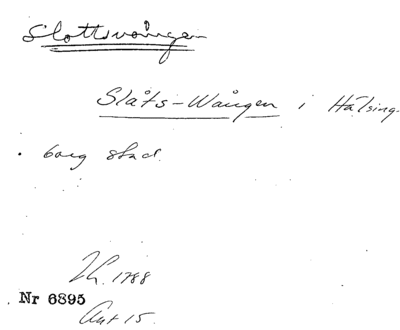 Slottsvången
Slåts-Wången i Hälsing-
borg stad.
Lk. 1788
Nr 6895
Akt 15.